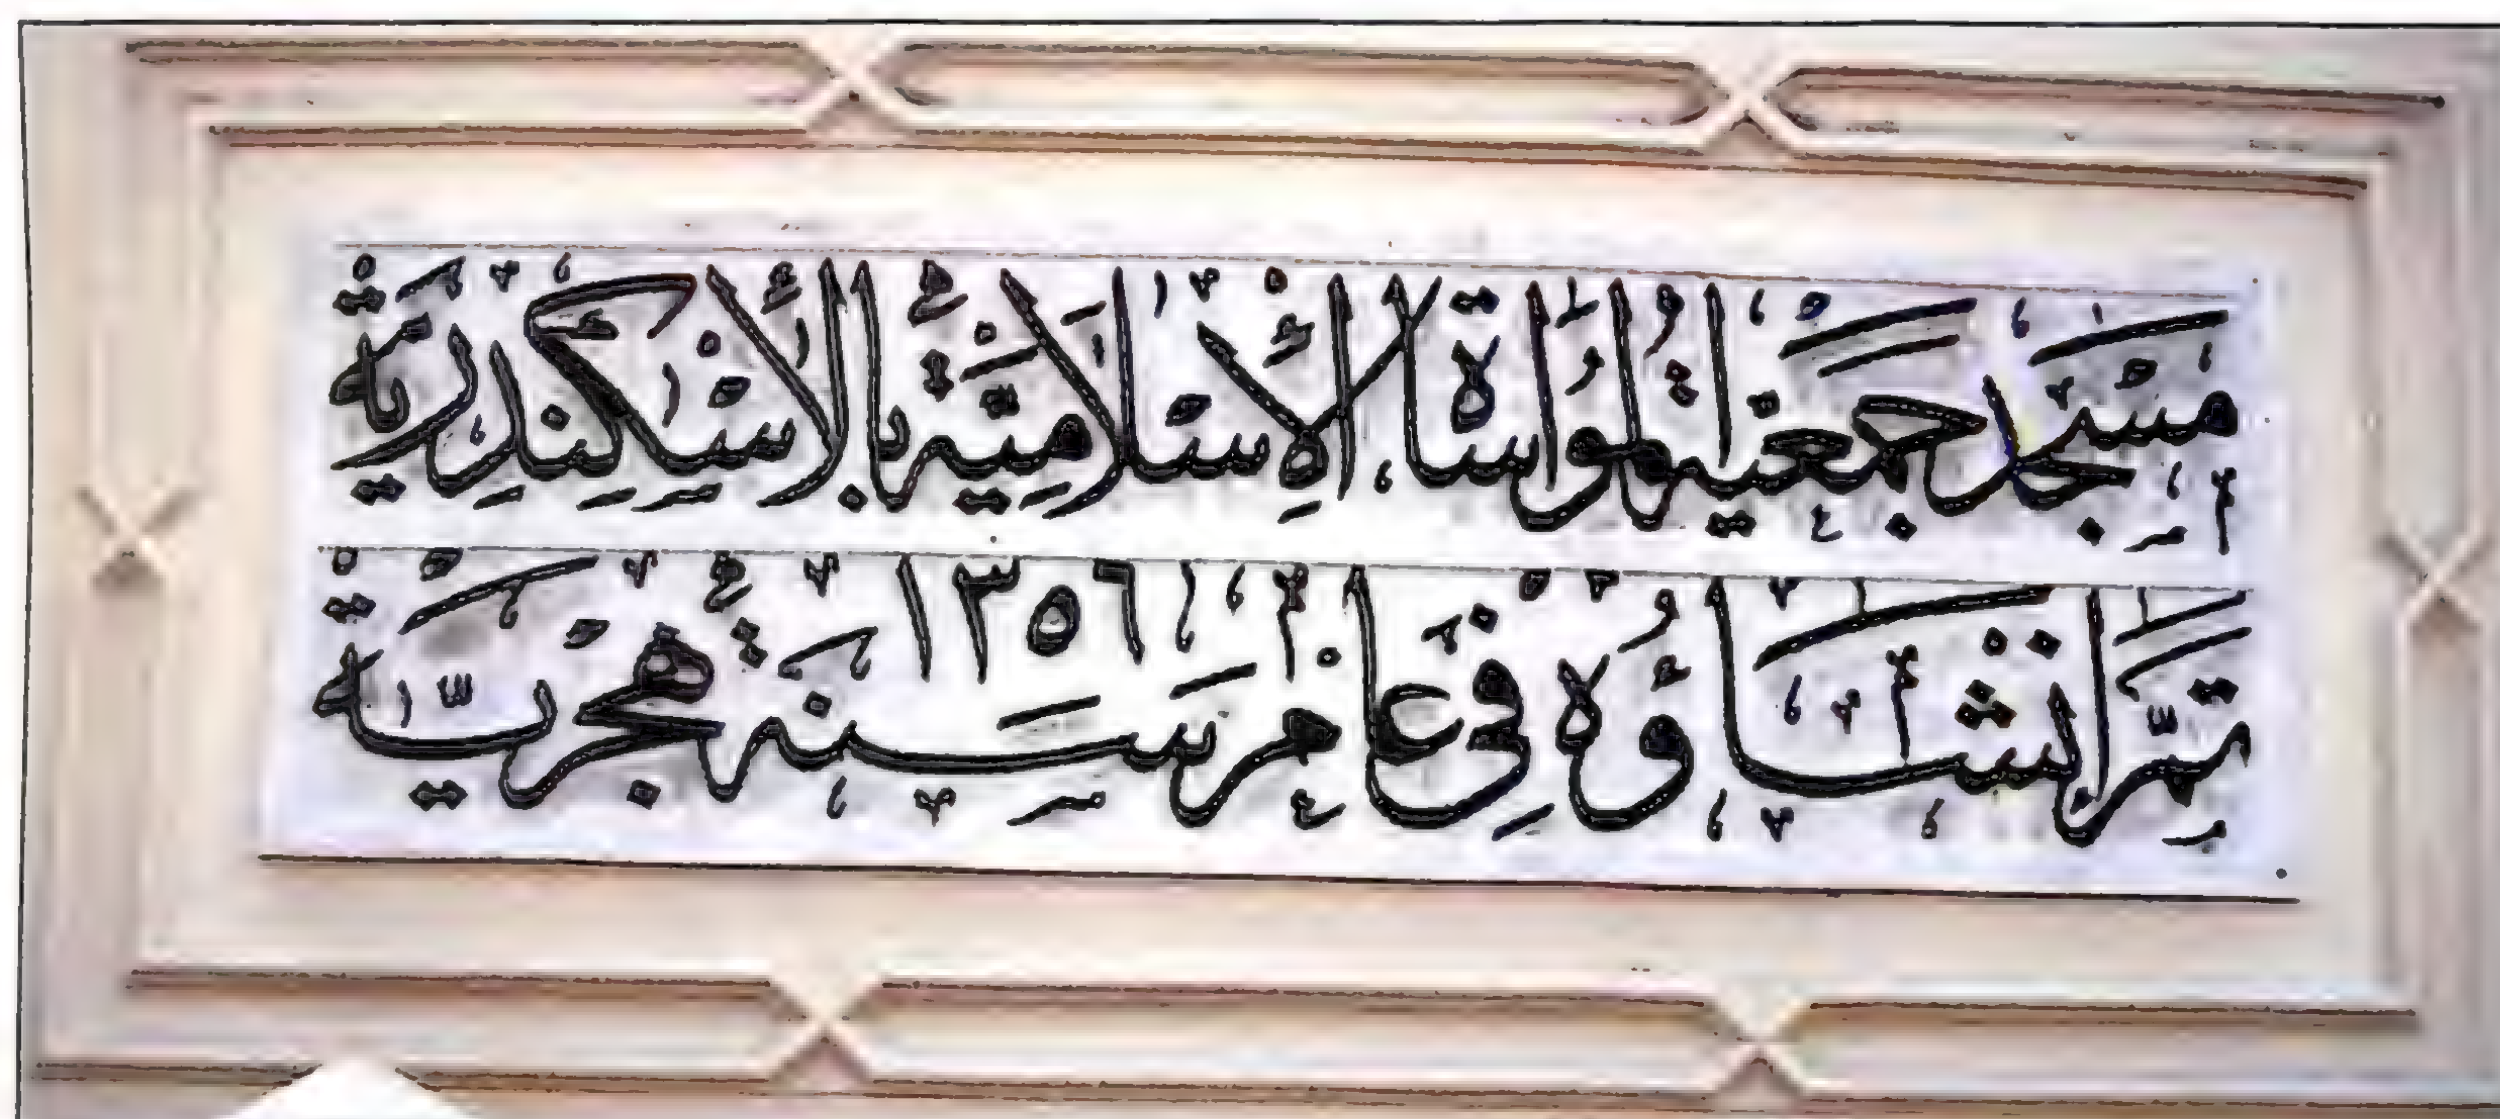 مسجد جمعية المواساة الإسلامية بالإسكندرية
تم إنشاؤه في عام سنة ١٣٥٦ هجرية